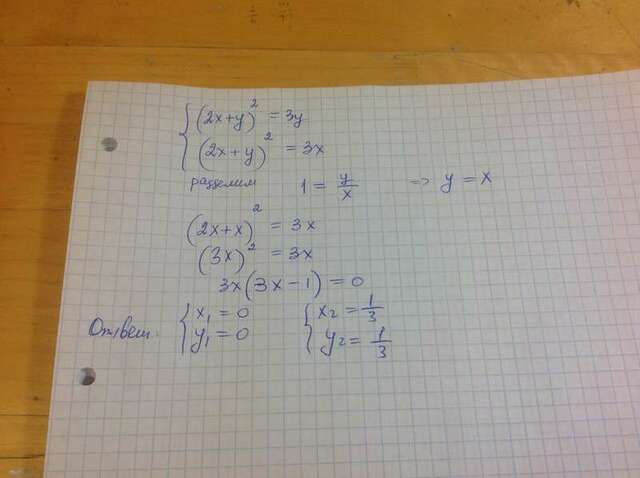 (2x+y)² = 3y
(2x+y)² = 3x
разделим 1 = y/x => y = x
(2x+x)² = 3x
(3x)² = 3x
3x(3x-1) = 0
Ответ: { x₁ = 0 { x₂ = 1/3
y₁ = 0 y₂ = 1/3